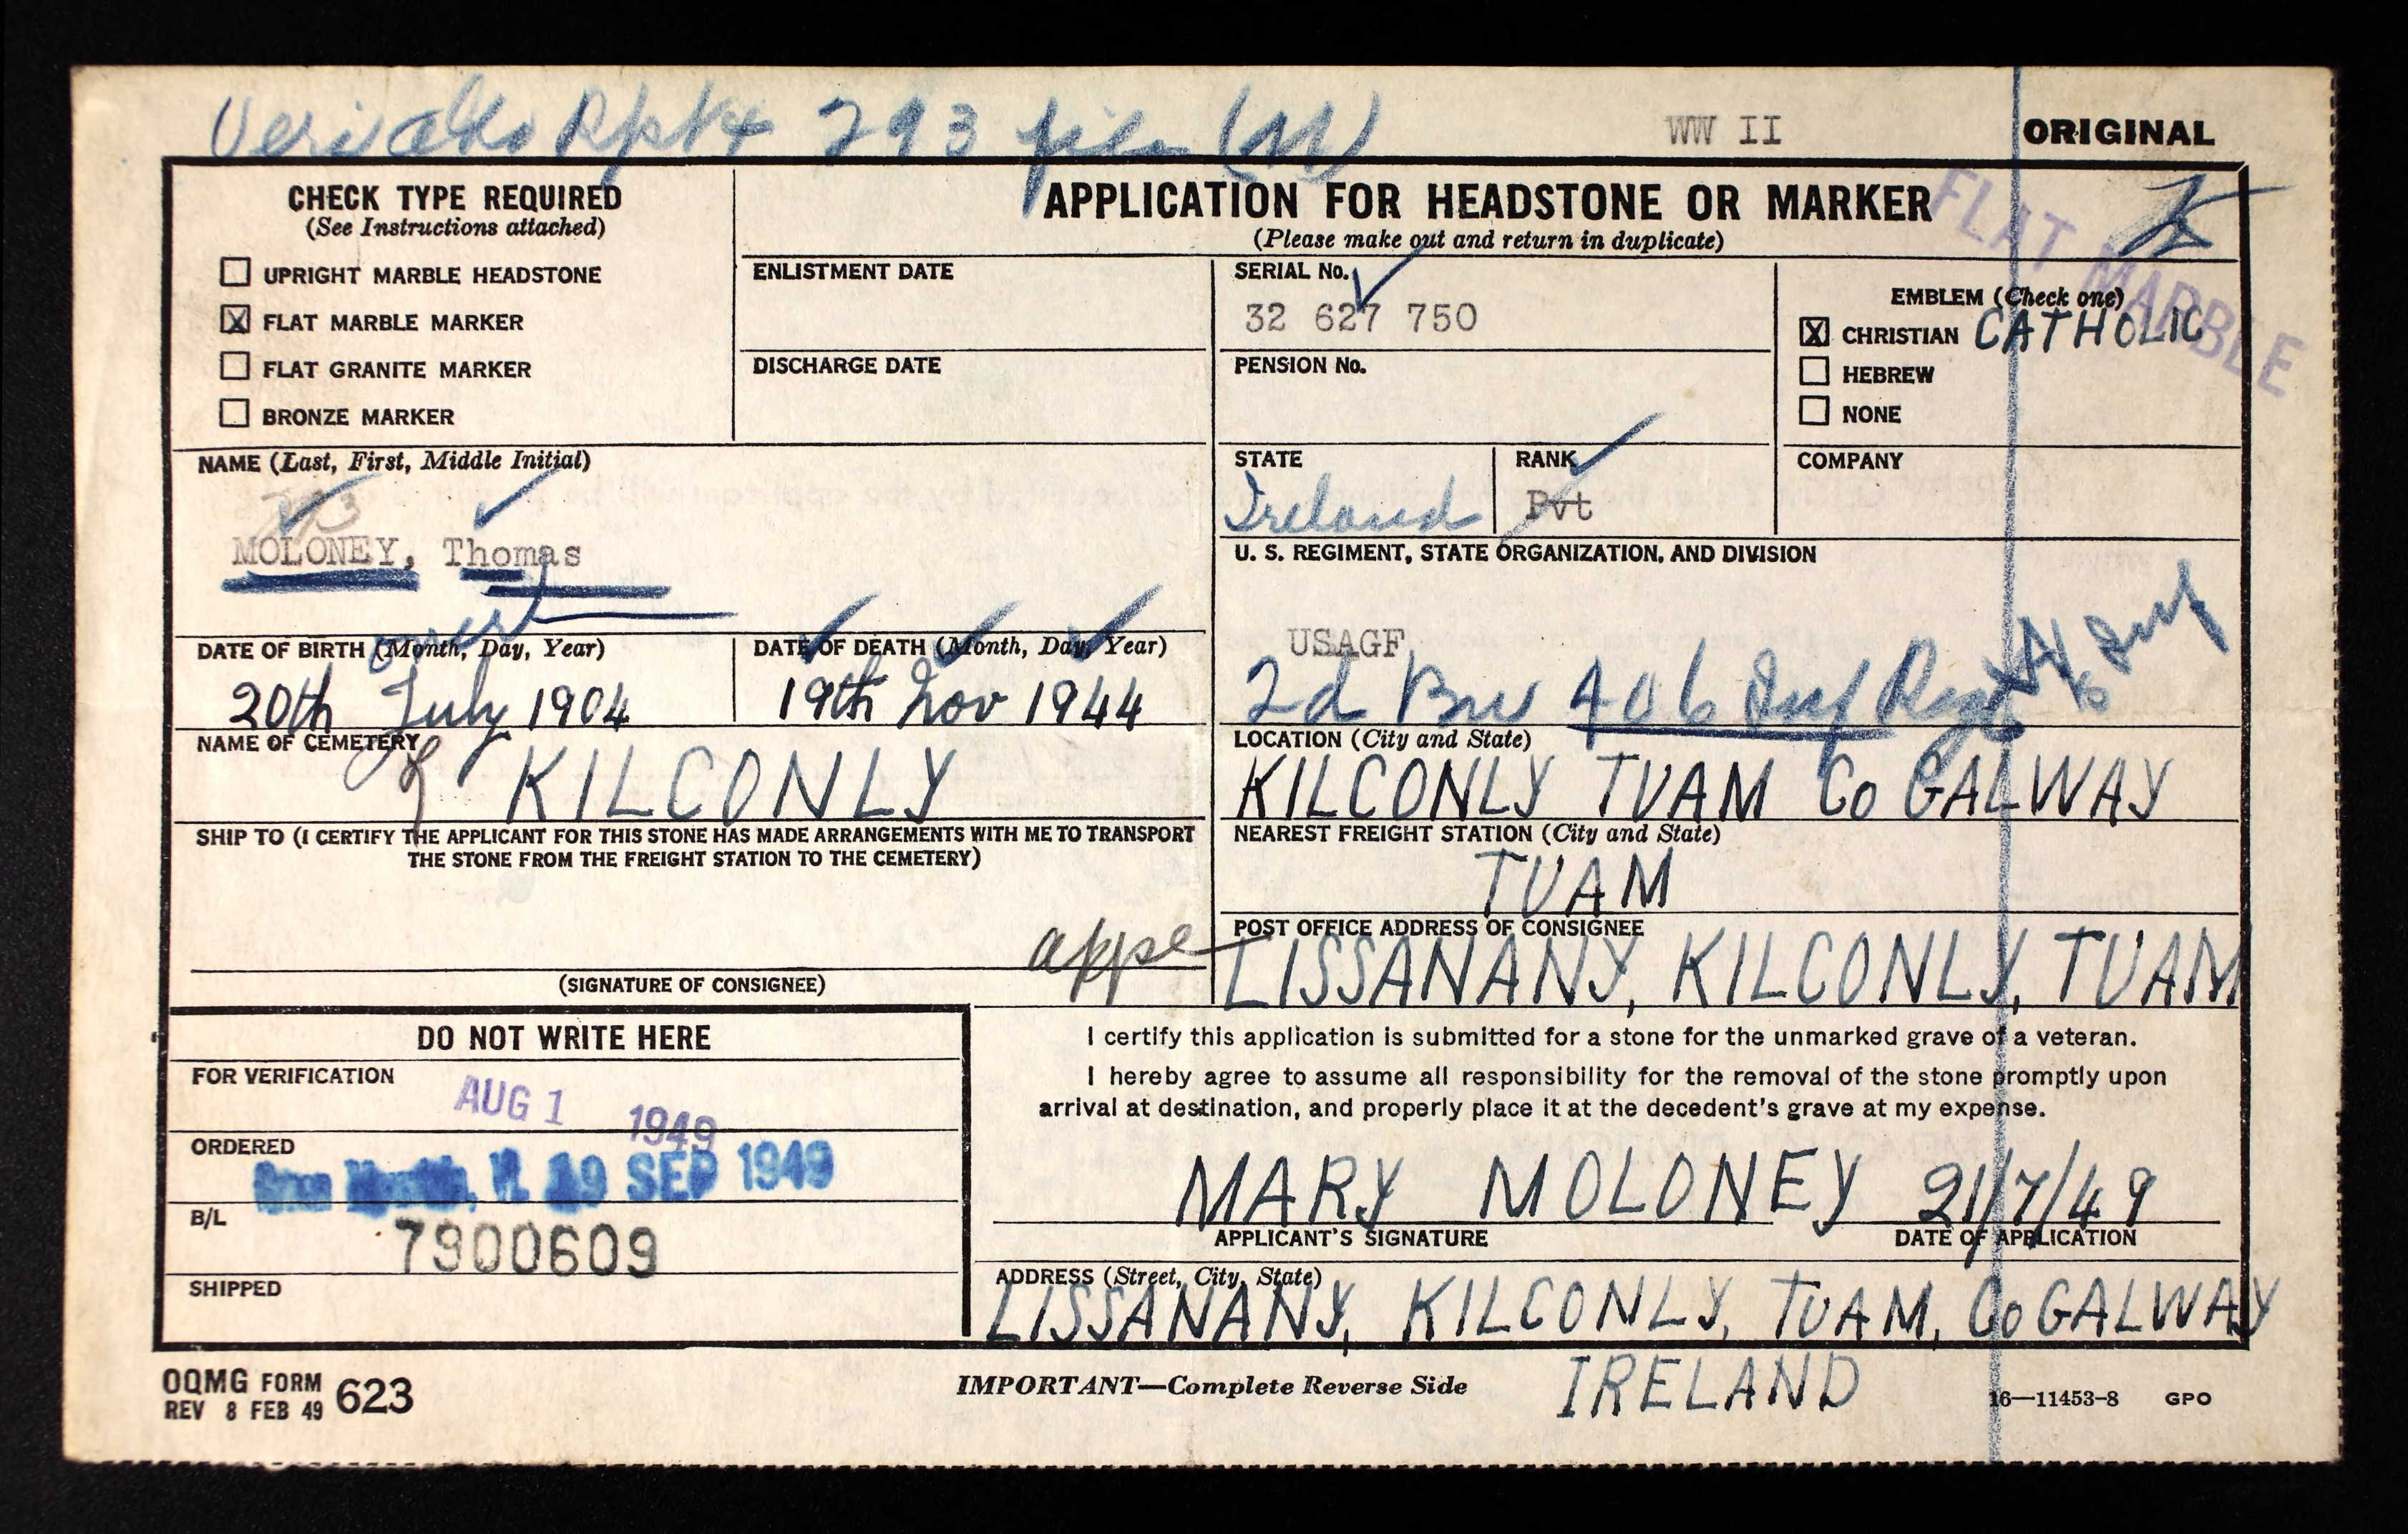 293 file (M)
WW II
ORIGINAL
CHECK TYPE REQUIRED
(See Instructions attached)
UPRIGHT MARBLE HEADSTONE
X FLAT MARBLE MARKER
FLAT GRANITE MARKER
BRONZE MARKER
APPLICATION FOR HEADSTONE OR MARKER
(Please make out and return in duplicate)
FLAT MARBLE
ENLISTMENT DATE
DISCHARGE DATE
SERIAL No.
32 627 750
PENSION No.
EMBLEM (Check one)
X CHRISTIAN CATHOLIC
HEBREW
NONE
NAME (Last, First, Middle Initial)
MOLONEY, Thomas
STATE
Ireland
RANK
Pvt
COMPANY
U. S. REGIMENT, STATE ORGANIZATION, AND DIVISION
USAGF
2d Bn 406 Inf Regt
DATE OF BIRTH (Month, Day, Year)
20th July 1904
DATE OF DEATH (Month, Day, Year)
19th Nov 1944
NAME OF CEMETERY
KILCONLY
LOCATION (City and State)
KILCONLY TUAM Co GALWAY
SHIP TO (I CERTIFY THE APPLICANT FOR THIS STONE HAS MADE ARRANGEMENTS WITH ME TO TRANSPORT
THE STONE FROM THE FREIGHT STATION TO THE CEMETERY)
(SIGNATURE OF CONSIGNEE)
NEAREST FREIGHT STATION (City and State)
TUAM
POST OFFICE ADDRESS OF CONSIGNEE
LISSANANY, KILCONLY, TUAM
DO NOT WRITE HERE
FOR VERIFICATION
AUG 1 1949
ORDERED
SEP 1949
B/L
7900609
SHIPPED
I certify this application is submitted for a stone for the unmarked grave of a veteran.
I hereby agree to assume all responsibility for the removal of the stone promptly upon
arrival at destination, and properly place it at the decedent's grave at my expense.
MARY MOLONEY 21/7/49
APPLICANT'S SIGNATURE
DATE OF APPLICATION
ADDRESS (Street, City, State)
LISSANANY, KILCONLY, TUAM, Co GALWAY
IRELAND
OQMG FORM 623
REV 8 FEB 49
IMPORTANT—Complete Reverse Side
16—11453-8 GPO